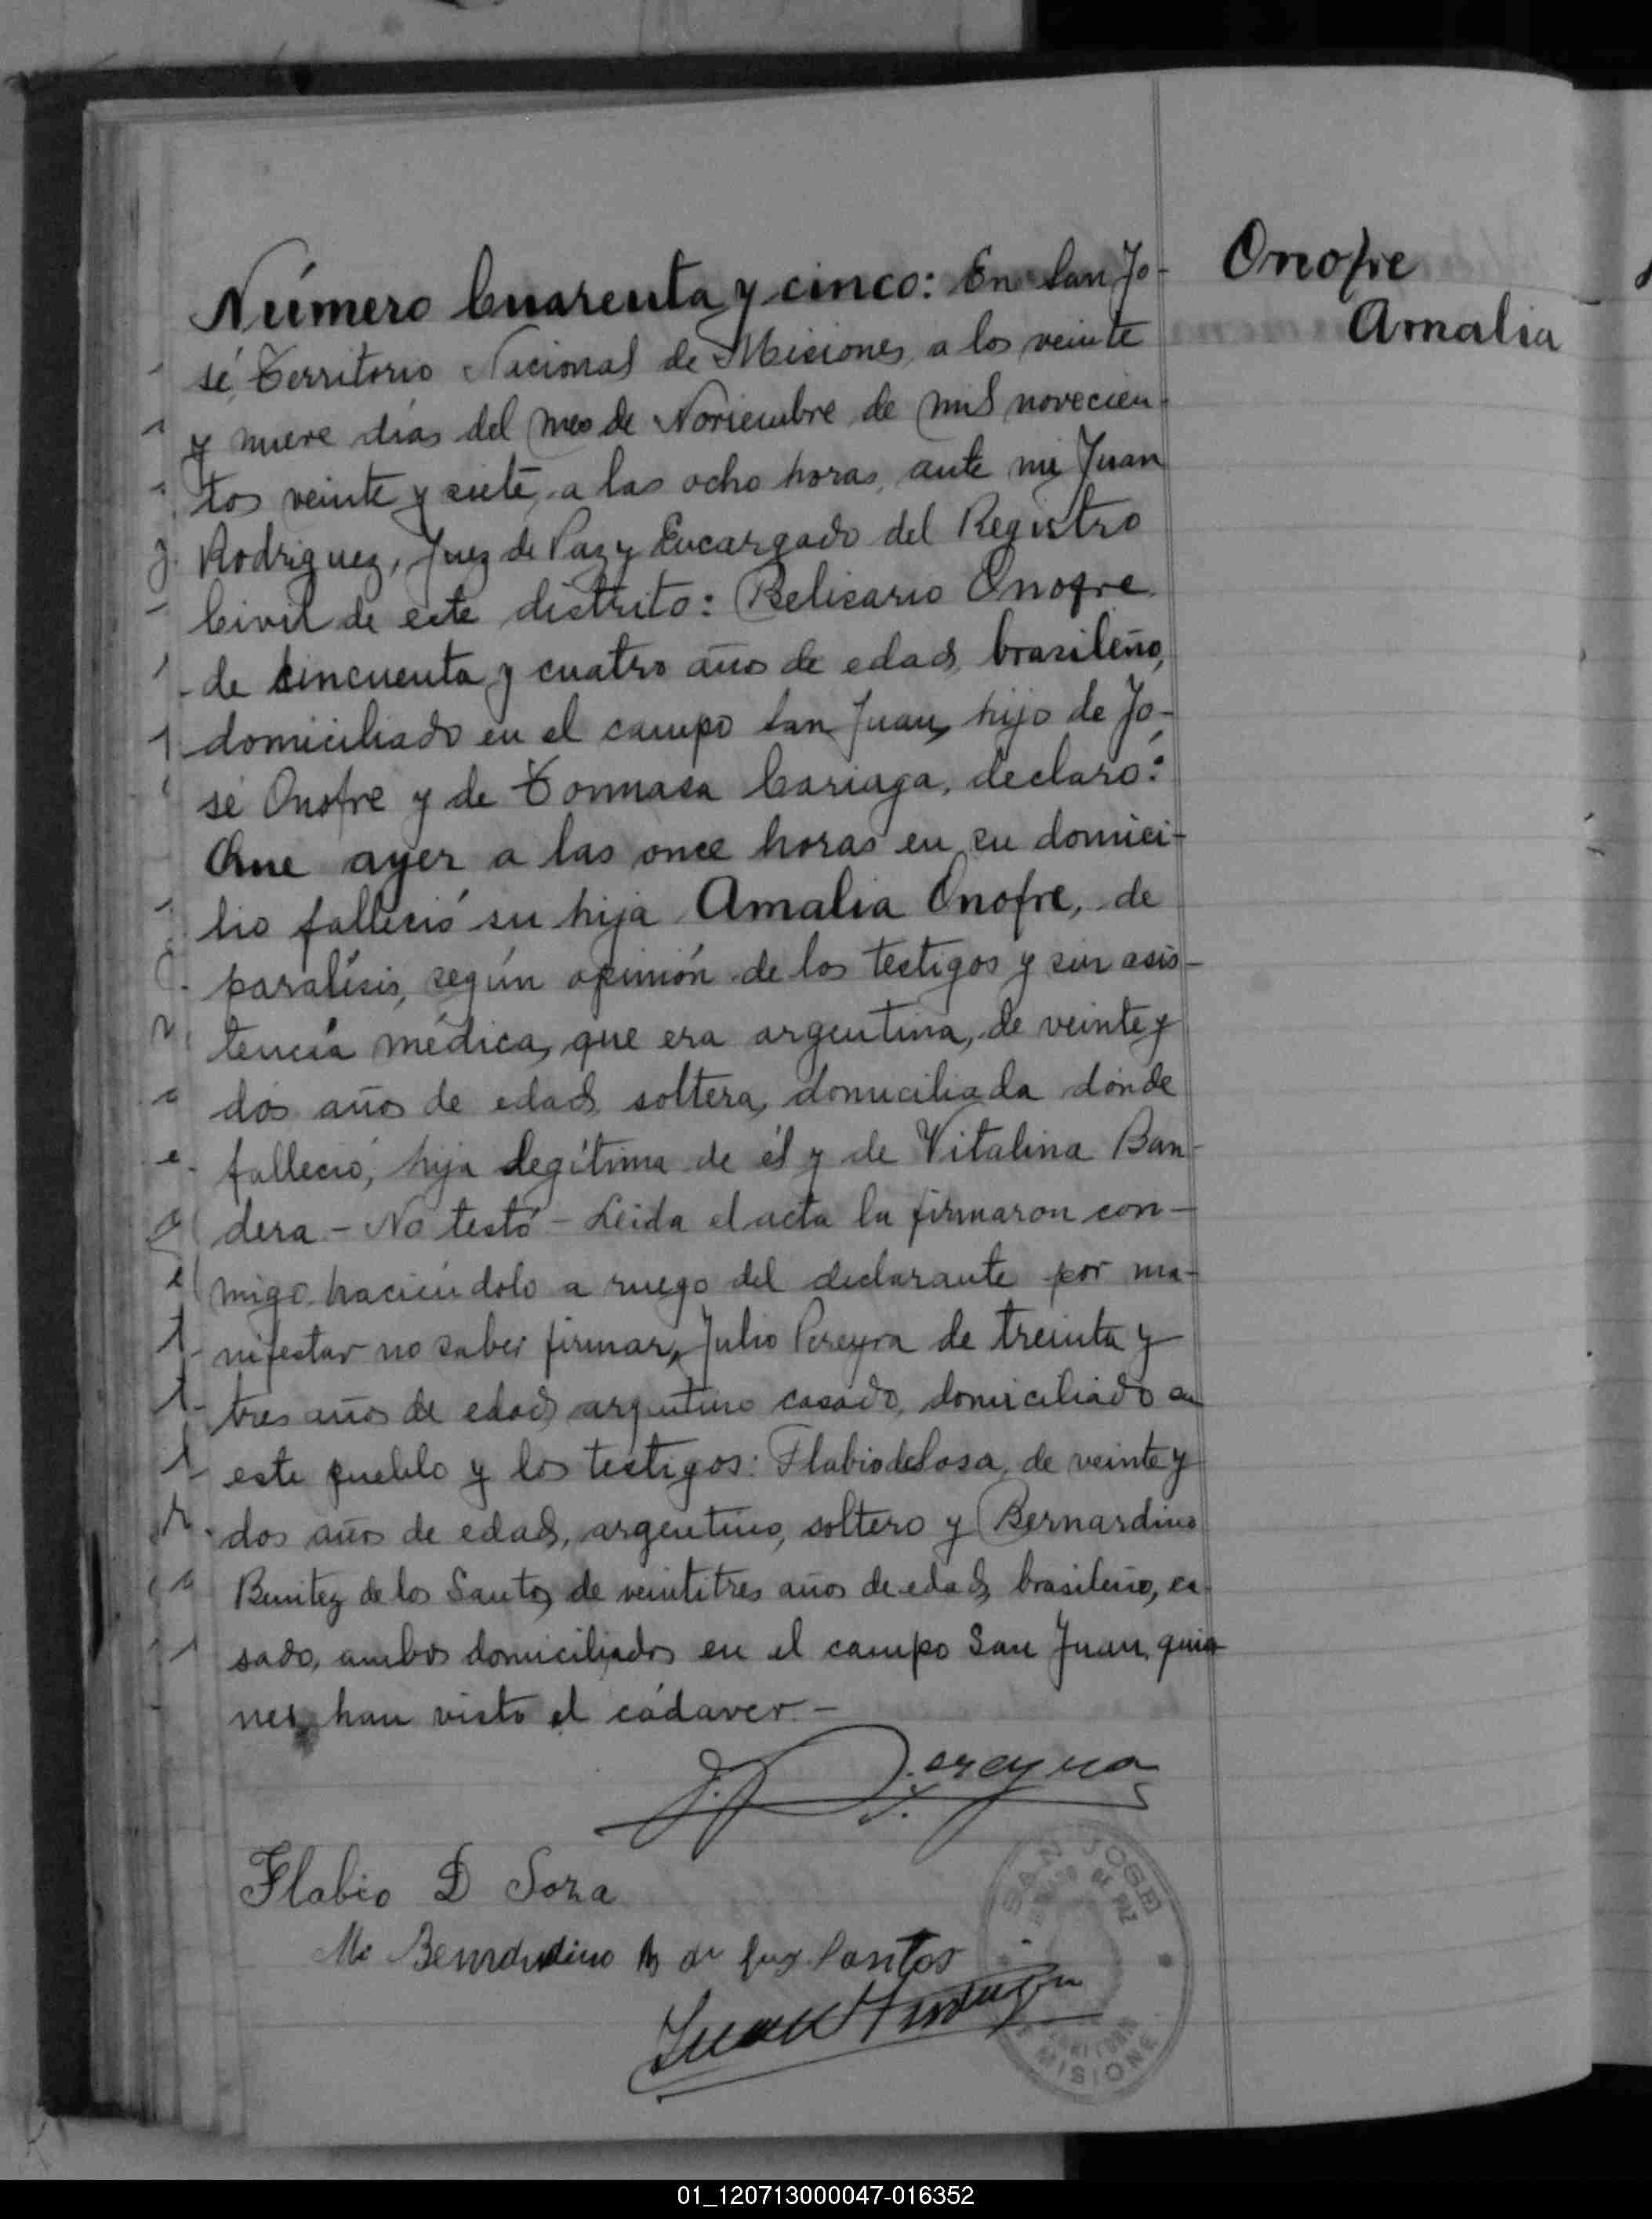 Número Cuarenta y cinco: En San Jo-
sé, Territorio Nacional de Misiones, a los veinte
y nueve días del mes de Noviembre de mil novecien-
tos veinte y siete, a las ocho horas, ante mi Juan
Rodriguez, Juez de Paz y Encargado del Registro
Civil de este distrito: Belisario Onofre
de cincuenta y cuatro años de edad, brasileño,
domiciliado en el campo San Juan, hijo de Jo-
sé Onofre y de Tommasa Cariaga, declaró:
Que ayer a las once horas en su domici-
lio falleció su hija Amalia Onofre, de
paralísis, según opinión de los testigos y sin asis-
tencia médica, que era argentina, de veinte y
dos años de edad, soltera, domiciliada donde
falleció, hija legítima de él y de Vitalina Ban-
dera - No testó - Leida el acta la firmaron con-
migo haciéndolo a ruego del declarante por ma-
nifestar no saber firmar, Julio Pereyra de treinta y
tres años de edad, argentino casado, domiciliado en
este pueblo y los testigos: Flabio de Sosa, de veinte y
dos años de edad, argentino, soltero y Bernardino
Benitez de los Santos, de veintitres años de edad, brasileño, ca-
sado, ambos domiciliados en el campo San Juan, quie-
nes han visto el cádaver.-
Onofre
Amalia
J. Pereyra
Flabio D Soza
Bernardino B de los Santos
SAN JOSE
DE PAZ
MISIONES
01_120713000047-016352